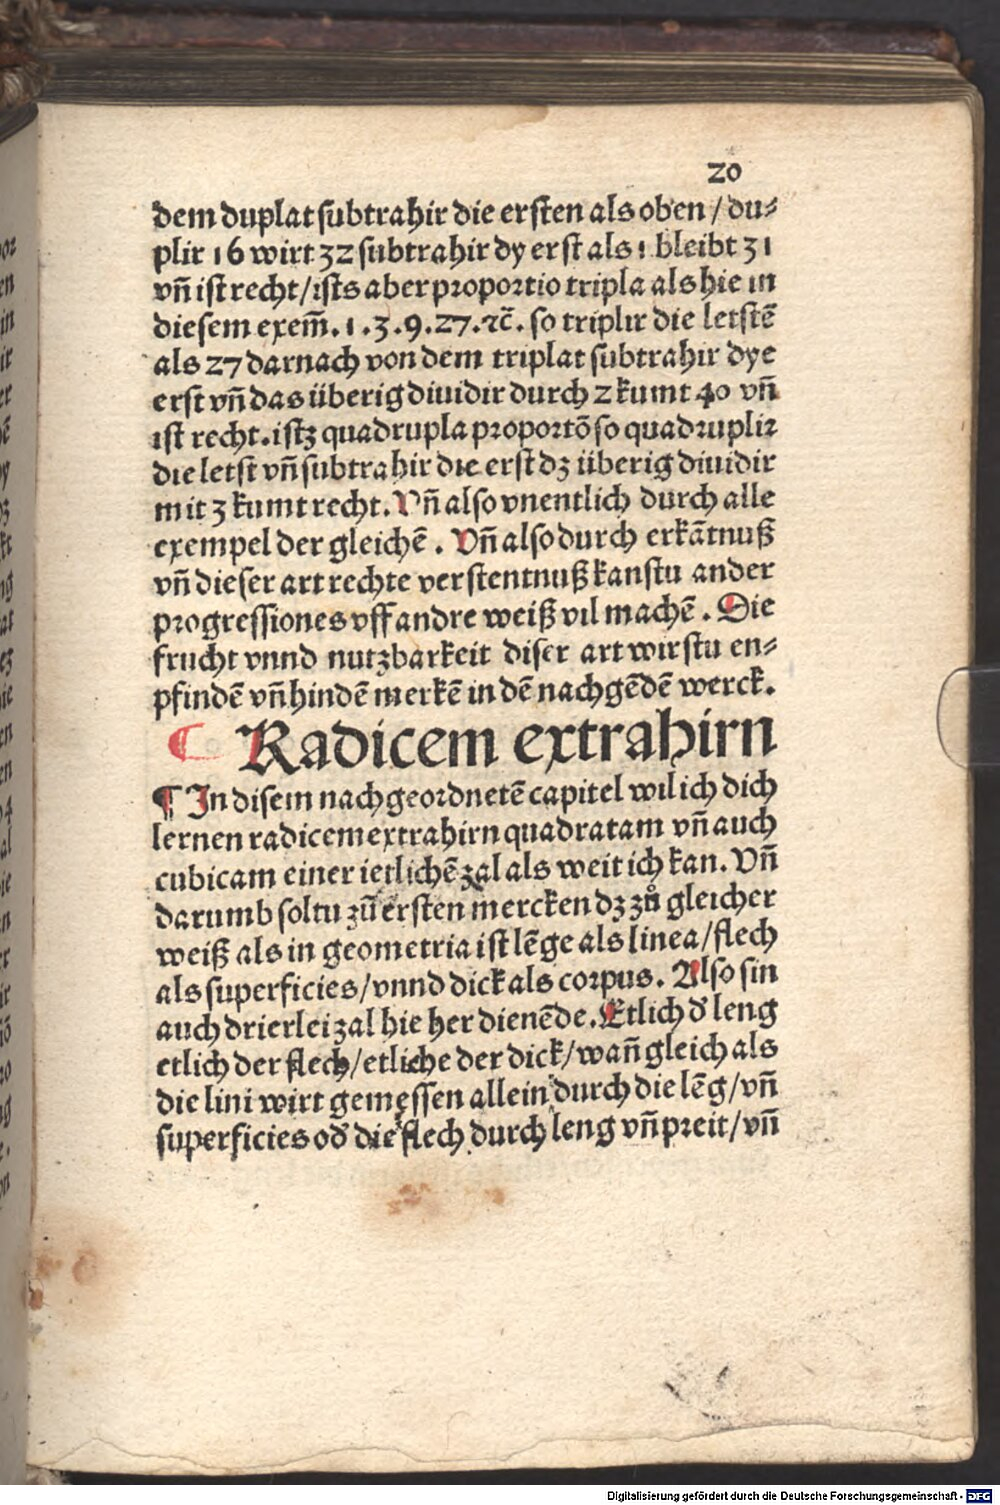 20
dem duplat subtrahir die ersten als oben / du⸗
plir 16 wirt 32 subtrahir dy erst als 1 bleibt 31
vn̄ ist recht / ists aber proportio tripla als hie in
diesem exem̄. 1 . 3 . 9 . 27 . ⁊c̄. so triplir die letstē
als 27 darnach von dem triplat subtrahir dye
erst vn̄ das überig diuidir durch 2 kumt 40 vn̄
ist recht. istz quadrupla proportō so quadruplir
die letst vn̄ subtrahir die erst dz überig diuidir
mit 3 kumt recht. Vn̄ also vnentlich durch alle
exempel der gleichē . Vn̄ also durch erkātnuß
vn̄ dieser art rechte verstentnuß kanstu ander
progressiones vff andre weiß vil machē . Die
frucht vnnd nutzbarkeit diser art wirstu en⸗
pfindē vn̄ hindē merkē in dē nachgēdē werck.
¶ Radicem extrahirn
¶ In disem nachgeordnetē capitel wil ich dich
lernen radicem extrahirn quadratam vn̄ auch
cubicam einer ietlichē zal als weit ich kan. Vn̄
darumb soltu zū ersten mercken dz zů gleicher
weiß als in geometria ist lēge als linea / flech
als superficies / vnnd dick als corpus. Also sin
auch drierlei zal hie her dienēde. Etlich đ leng
etlich der flech / etliche der dick / wan̄ gleich als
die lini wirt gemessen allein durch die lēg / vn̄
superficies ođ die flech durch leng vn̄ preit / vn̄
Digitalisierung gefördert durch die Deutsche Forschungsgemeinschaft - DFG